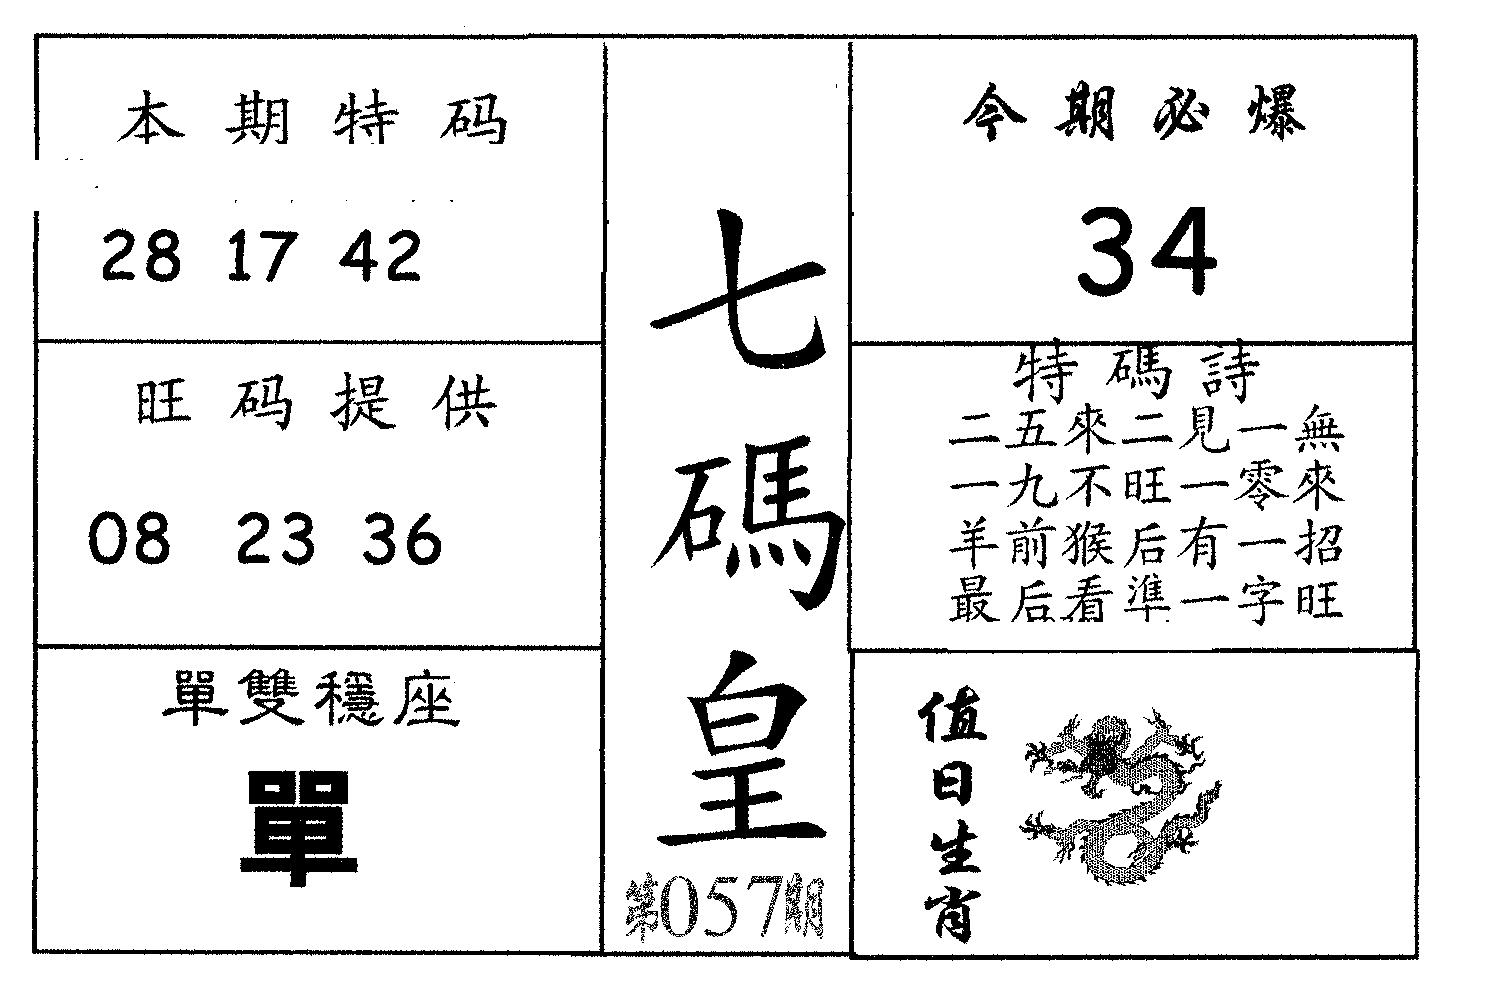 本期特码
28 17 42
旺码提供
08 23 36
單雙穩座
單
七碼皇
第057期
今期必爆
34
特碼詩
二五來二見一無
一九不旺一零來
羊前猴后有一招
最后看準一字旺
值日生肖